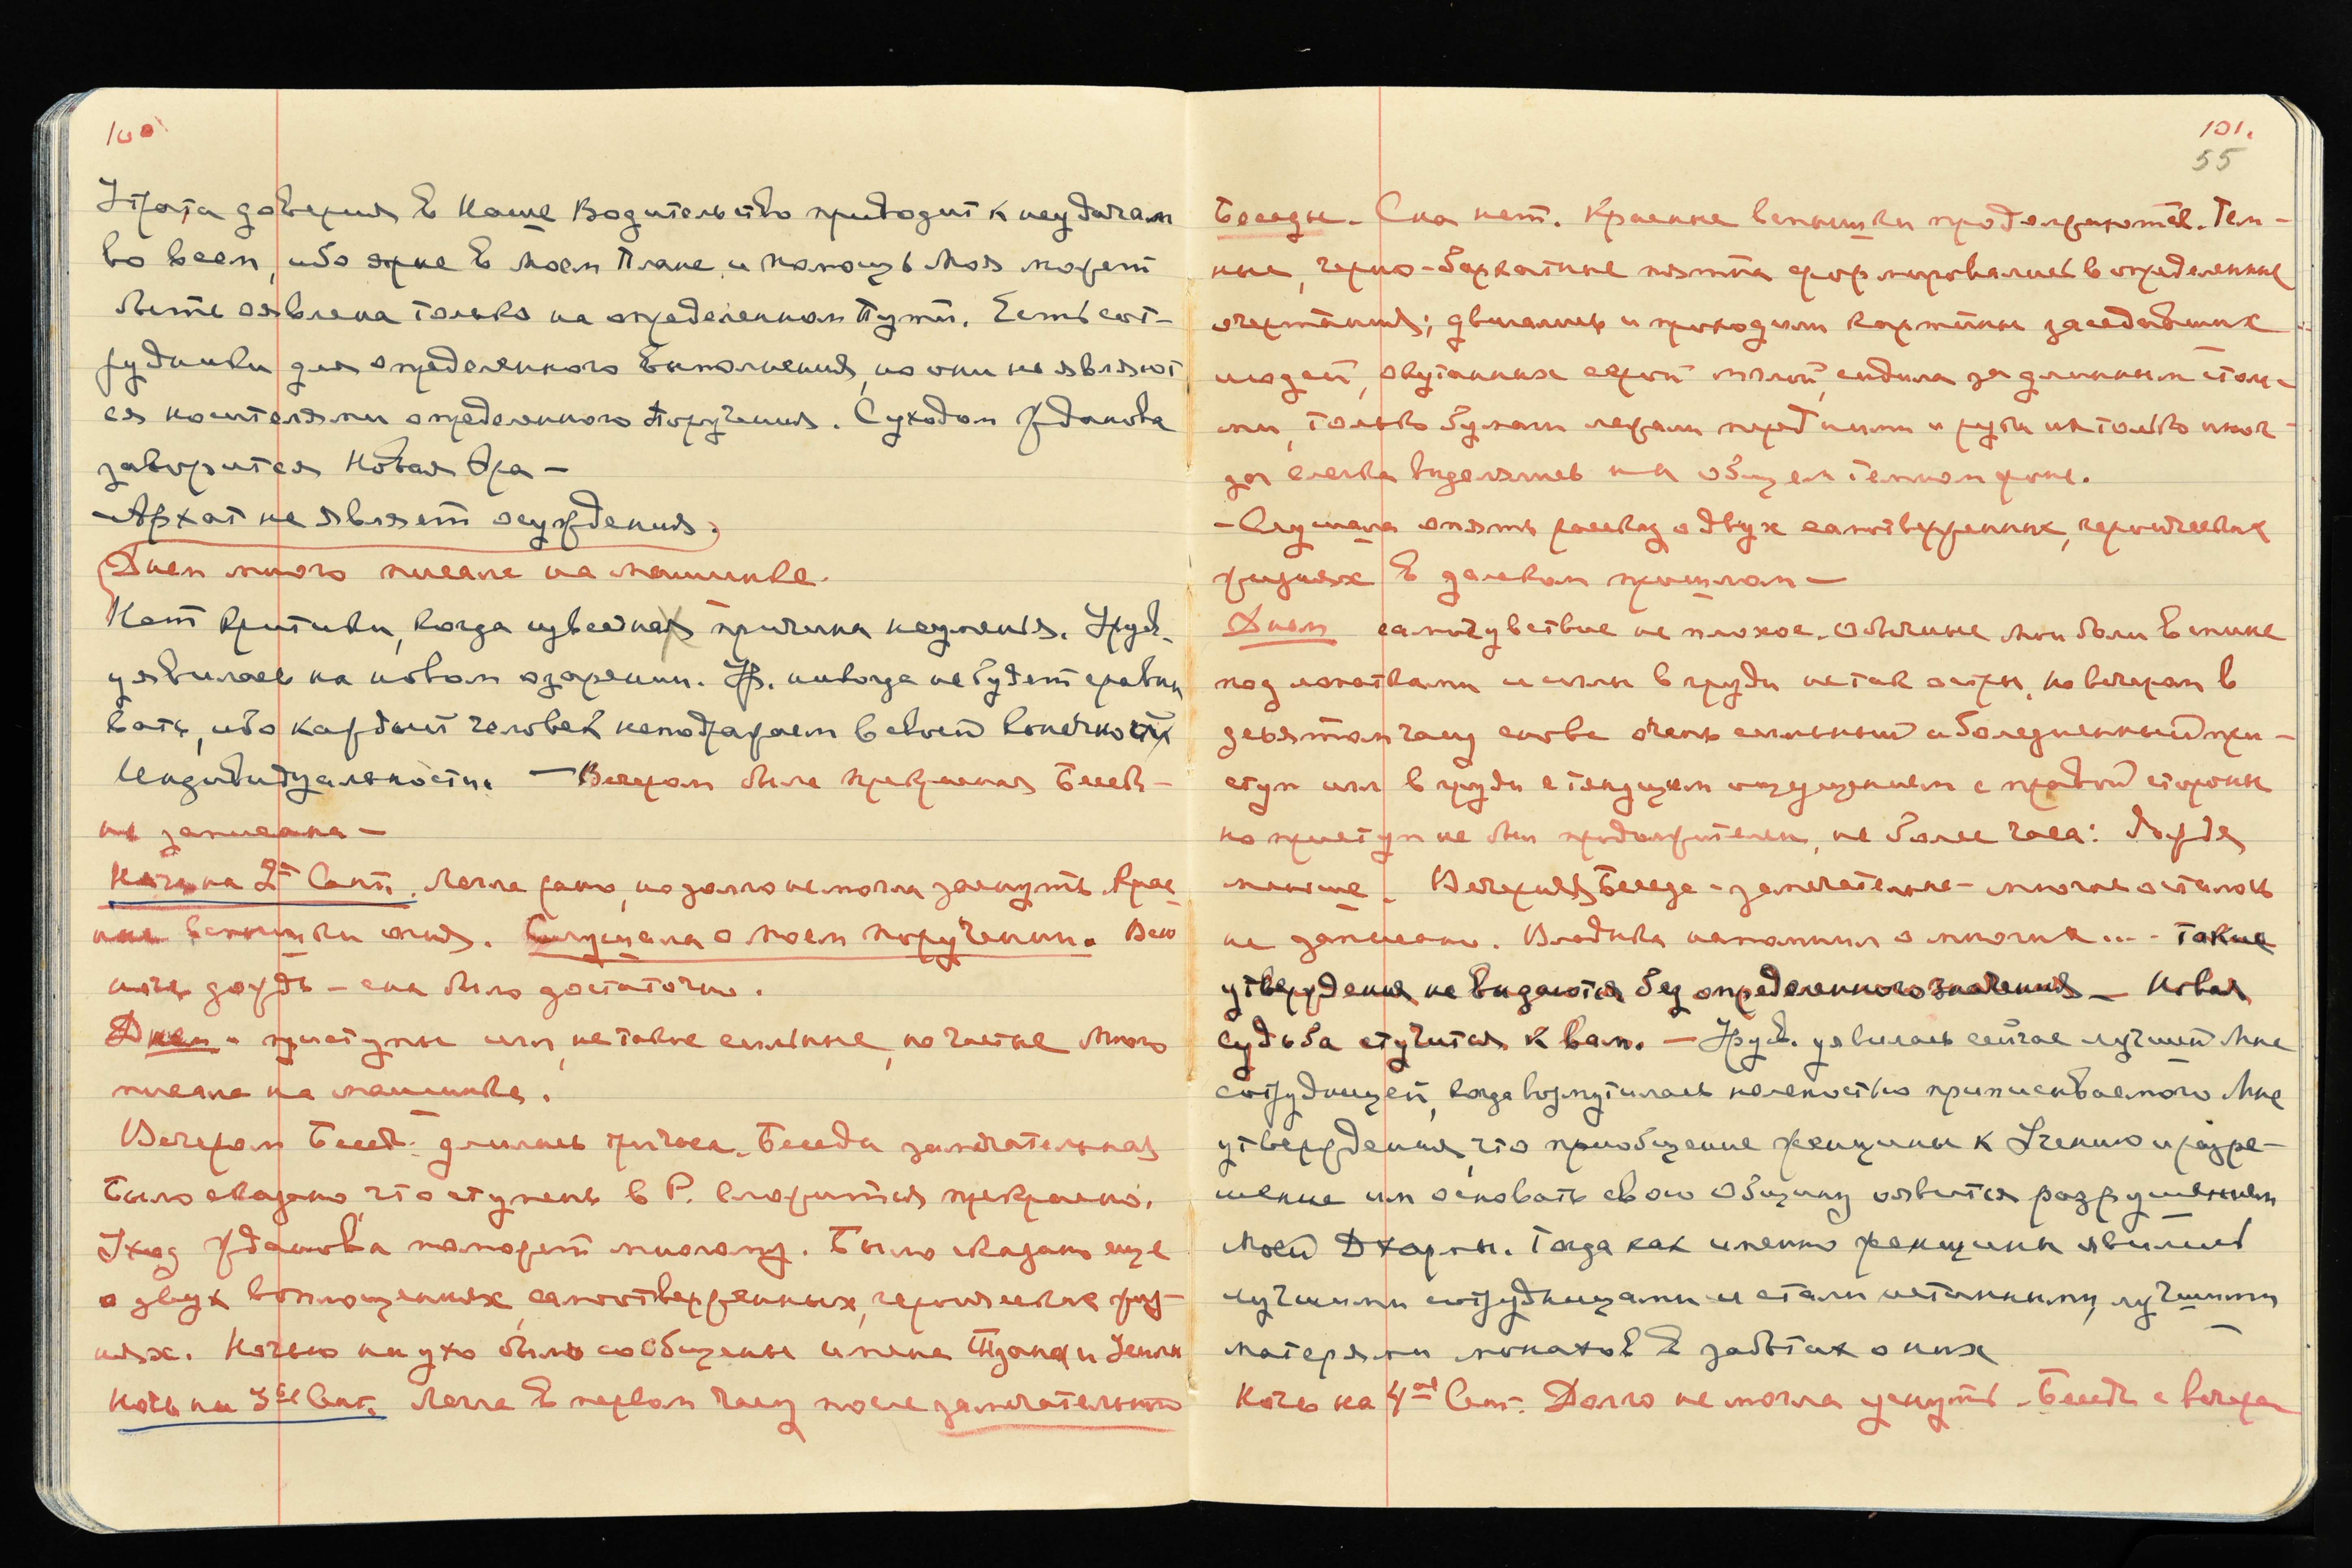 100
Утрата доверия в Наше Водительство приводит к неудачам
во всем, ибо  в Моем Плане и помощь Моя может
быть оявлена только на определенном Пути. Есть сот-
рудники для определенного выполнения, но они не являют
ся носителями определенного Поручения. С уходом Жданова
заворится Новая Эра —
— Архат не являет осуждения.
Днем много писала на машинке.
Нет критики, когда  причина неумения. Уруз.
уявилась на новом озарении. Ур. никогда не будет сравни
вать, ибо каждый человек неподражаем в своей конечности
Индивидуальности. — Вечером была прекрасная Бесед-
не записана —
Ночь на 2ое Сент. Легла рано, но долго не могла заснуть. Крас
ные вспышки огня. Слушала о моем поручении. Всю
ночь дождь — сна было достаточно.
Днем - приступы игл, не такие сильные, но частые Много
писала на машинке.
Вечером Бесед. длилась три часа. Беседа замечательная
Было сказано, что ступень в Р. сложится прекрасно.
Уход Жданова поможет многому. Было сказано еще
о двух воплощениях, самоотверженных, героических жиз-
нях. Ночью на ухо были сообщены имена
Ночь на 3ье Сент. Легла в первом часу после замечательной
101.
55
Беседы. Сна нет. Красные вспышки продолжаются. Тем-
ные, черно-бархатные пятна формировались в определенные
очертания; двигались и проходили картины заседавших
людей, окутанных серой мглой, сидели за длинными стола-
ми, только бумаги лежали перед ними и руки их только иног-
да слегка виделялись на общем темном фоне.
— Слушала опять рассказ о двух самоотверженных, героических
жизнях в далеком прошлом —
Днем самочувствие не плохое. Обычные мои боли в спине
под лопатками и иглы в груди не так остры, но вечером в
девятом часу снова очень сильный и болезненный при-
ступ игл в груди с тянущим ощущением с правой стороны
но приступ не был продолжителен, не более часа: дождя
меньше. Вечерняя Беседа - замечательна - многое осталось
не записано. Владыка напомнил о многих... - Такие
утверждения не выдаются без определенного значения — Новая
судьба стучится к вам. — Уруз. уявилась сейчас лучшей Мне
сотрудницей, когда возмутилась нелепостью приписываемого Мне
утверждения, что приобщение женщины к Учению и разре-
шение им основать свою Общину оявится разрушением
Моей Дхармы. Тогда как именно женщины явились
лучшими сотрудницами и стали истинными, лучшими
матерями монахов в заботах о них
Ночь на 4ое Сент. Долго не могла уснуть. Бесед. с вечера